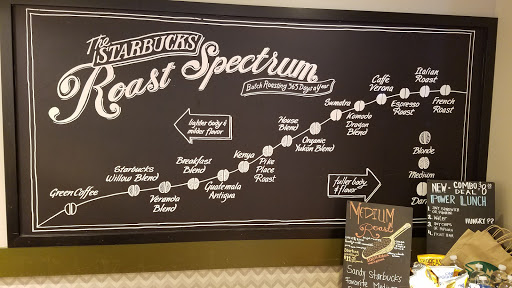 The
STARBUCKS
Roast Spectrum
Batch Roasting 365 Days a Year
lighter body &
milder flavor
Green Coffee
Starbucks
Willow Blend
Veranda
Blend
Breakfast
Blend
Guatemala
Antigua
Kenya
Pike
Place
Roast
House
Blend
Organic
Yukon Blend
Sumatra
Komodo
Dragon
Blend
Caffè
Verona
Espresso
Roast
Italian
Roast
French
Roast
fuller body
& flavor
Blonde
Medium
Dar
MEDIUM
Roast
Sandy Starbucks
Favorite Medium
NEW COMBO $8
DEAL
POWER LUNCH
1.
2. WATER
3.
4. FRUIT BAR
HUNGRY??